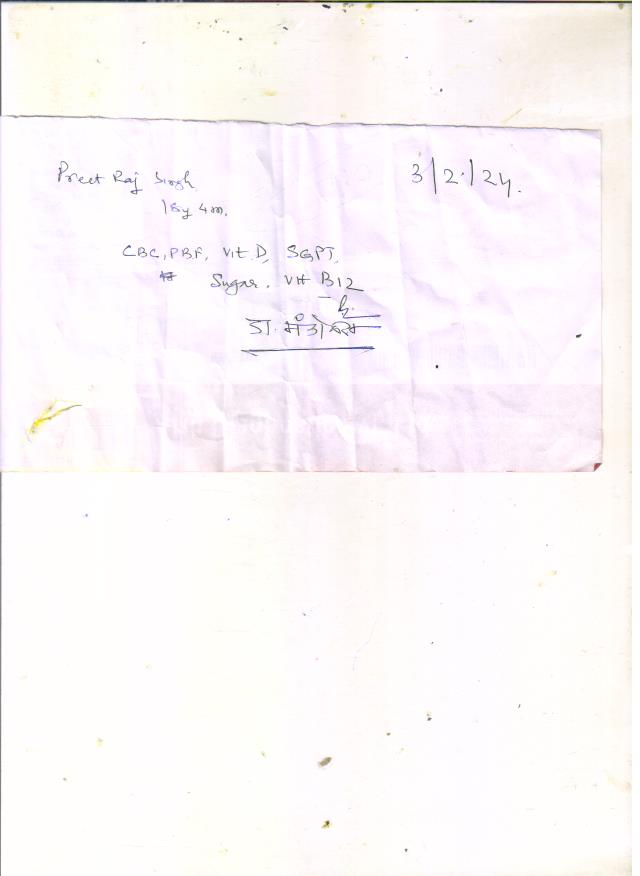 Preet Raj Singh
3/2/24.
18y 4m.
CBC, P.B.F, Vit. D, SGPT,
Sugar. Vit B12
डा.